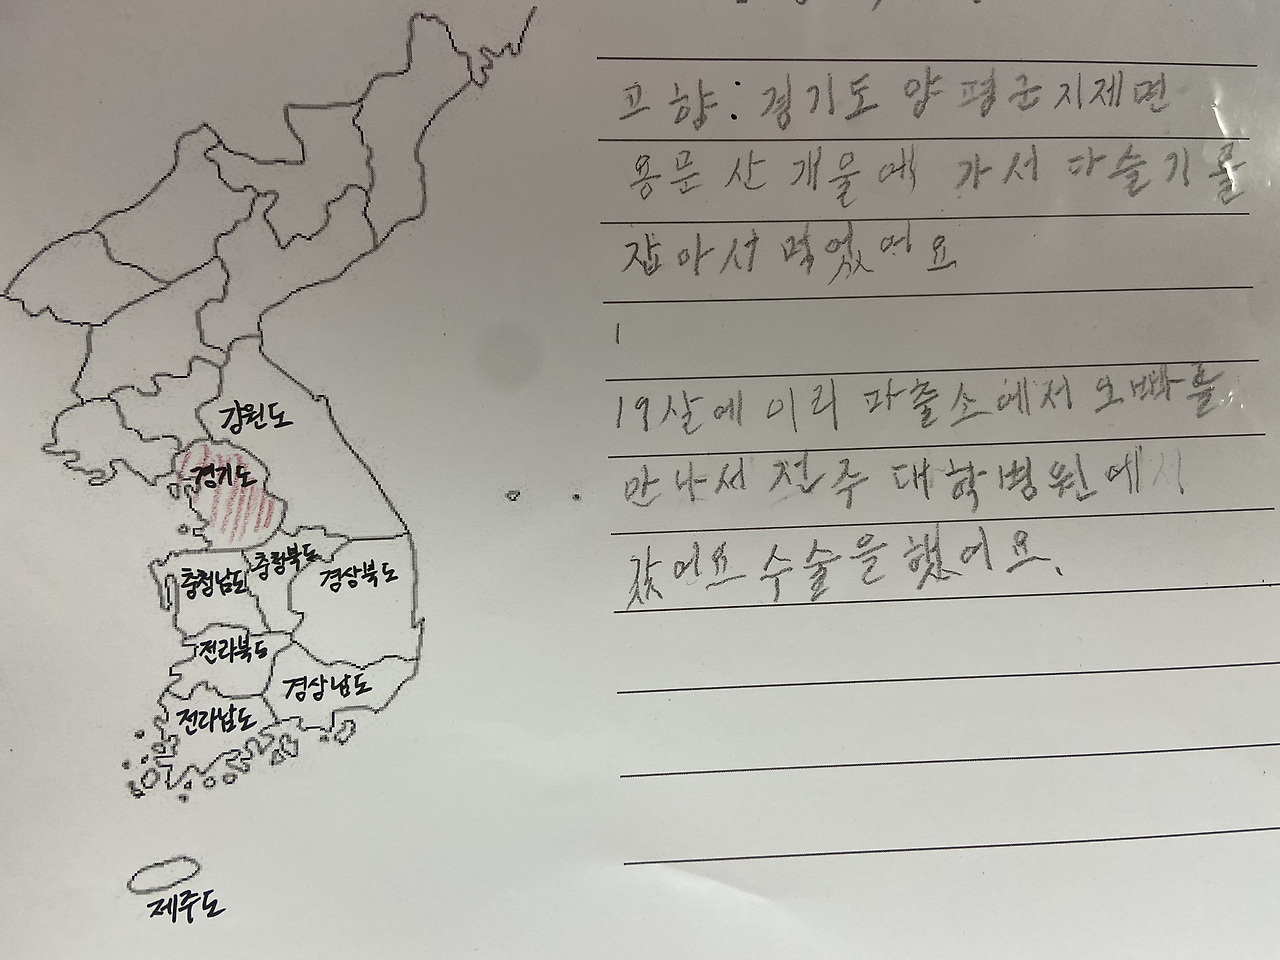 고향: 경기도 양평군 지제면
용문산 개울에 가서 다슬기를
잡아서 먹었어요
19살에 이리 파출소에서 오빠를
만나서 전주 대학병원에서
갔어요 수술을 했어요.
강원도
경기도
충청남도
충청북도
경상북도
전라북도
경상남도
전라남도
제주도